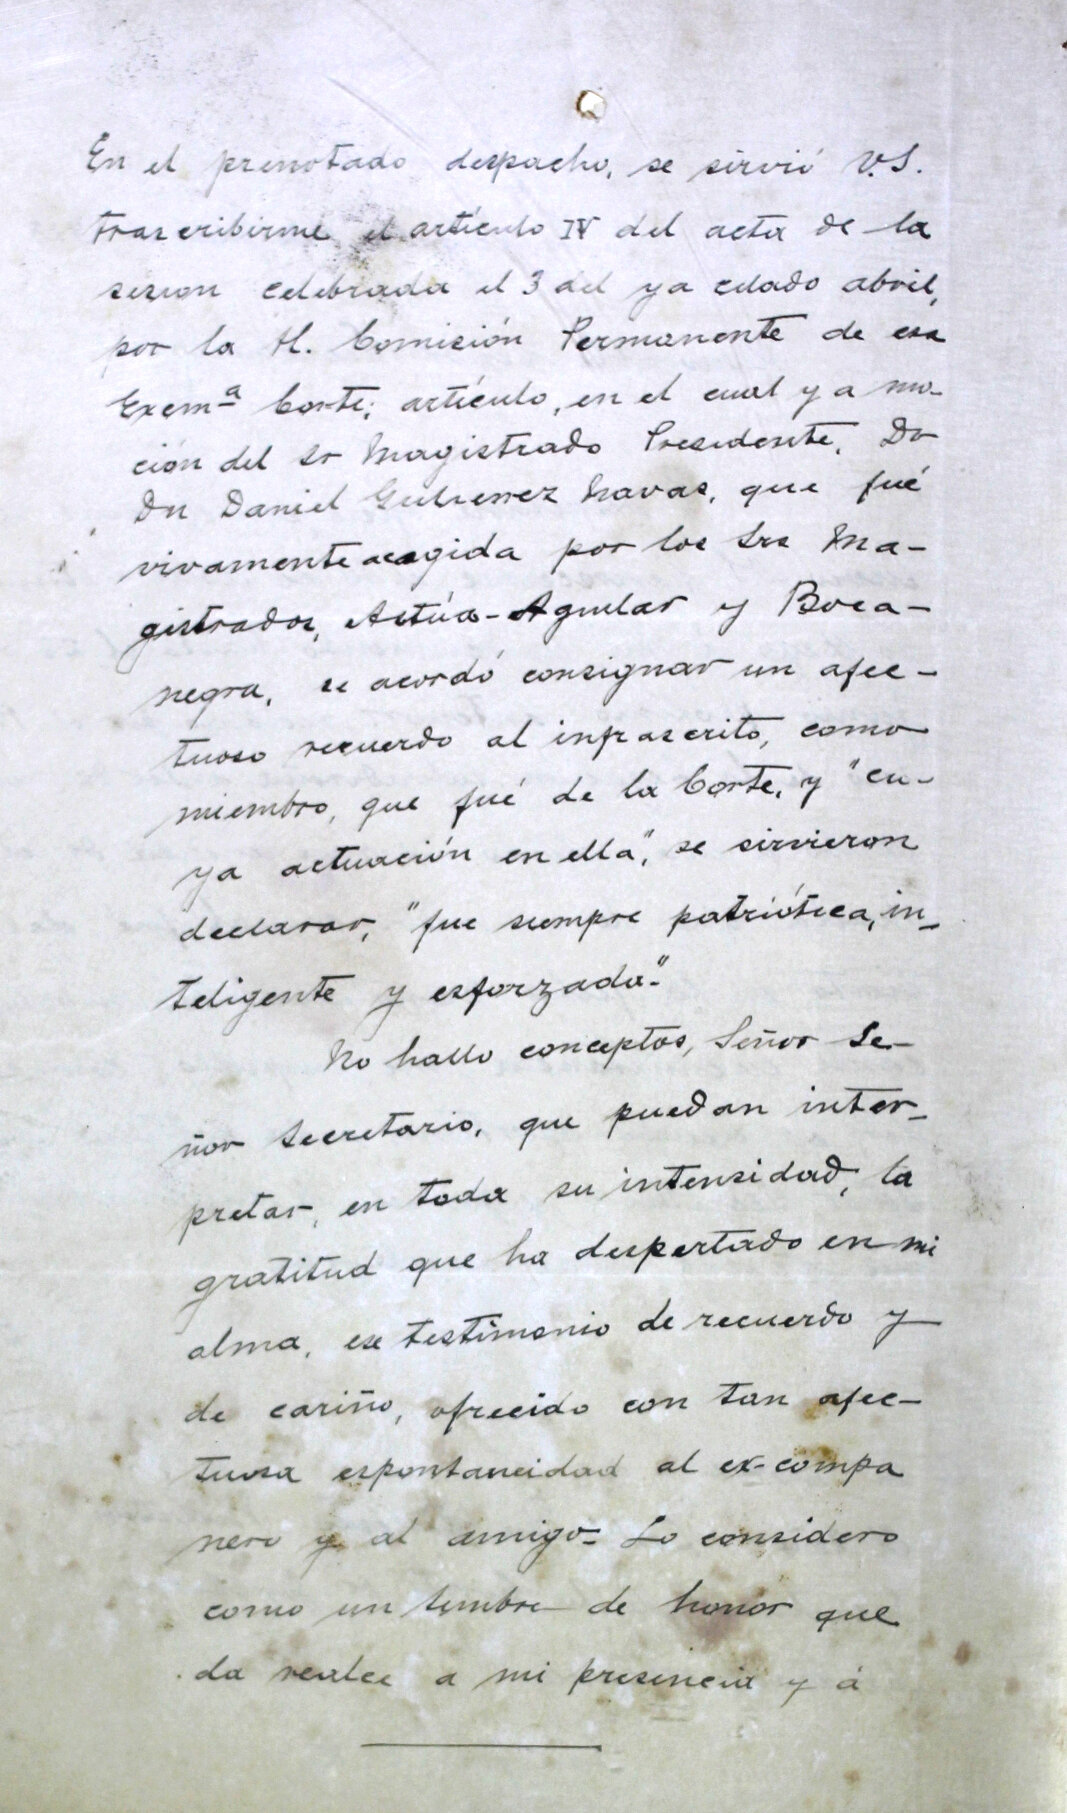 En el prenotado despacho, se sirvió V.S.
trascribirme el artículo IV del acta de la
sesion celebrada el 3 del ya citado abril,
por la H. Comisión Permanente de esa
Exemª Corte; artículo, en el cual y a mo-
ción del Sr Magistrado Presidente, Dr
Dn Daniel Gutierrez Navas, que fué
vivamente acogida por los Srs Ma-
gistrados, Astúa-Aguilar y Boca-
negra, se acordó consignar un afec-
tuoso recuerdo al infrascrito, como
miembro, que fué de la Corte, y "cu-
ya actuación en ella", se sirvieron
declarar, "fue siempre patriótica, in-
teligente y esforzada".
No hallo conceptos, Señor Se-
ñor Secretario, que puedan inter-
pretar, en toda su intensidad, la
gratitud que ha despertado en mi
alma, ese testimonio de recuerdo y
de cariño, ofrecido con tan afec-
tuosa espontaneidad al ex-compa
nero y al amigo. Lo considero
como un timbre de honor que
da realce a mi presencia y á